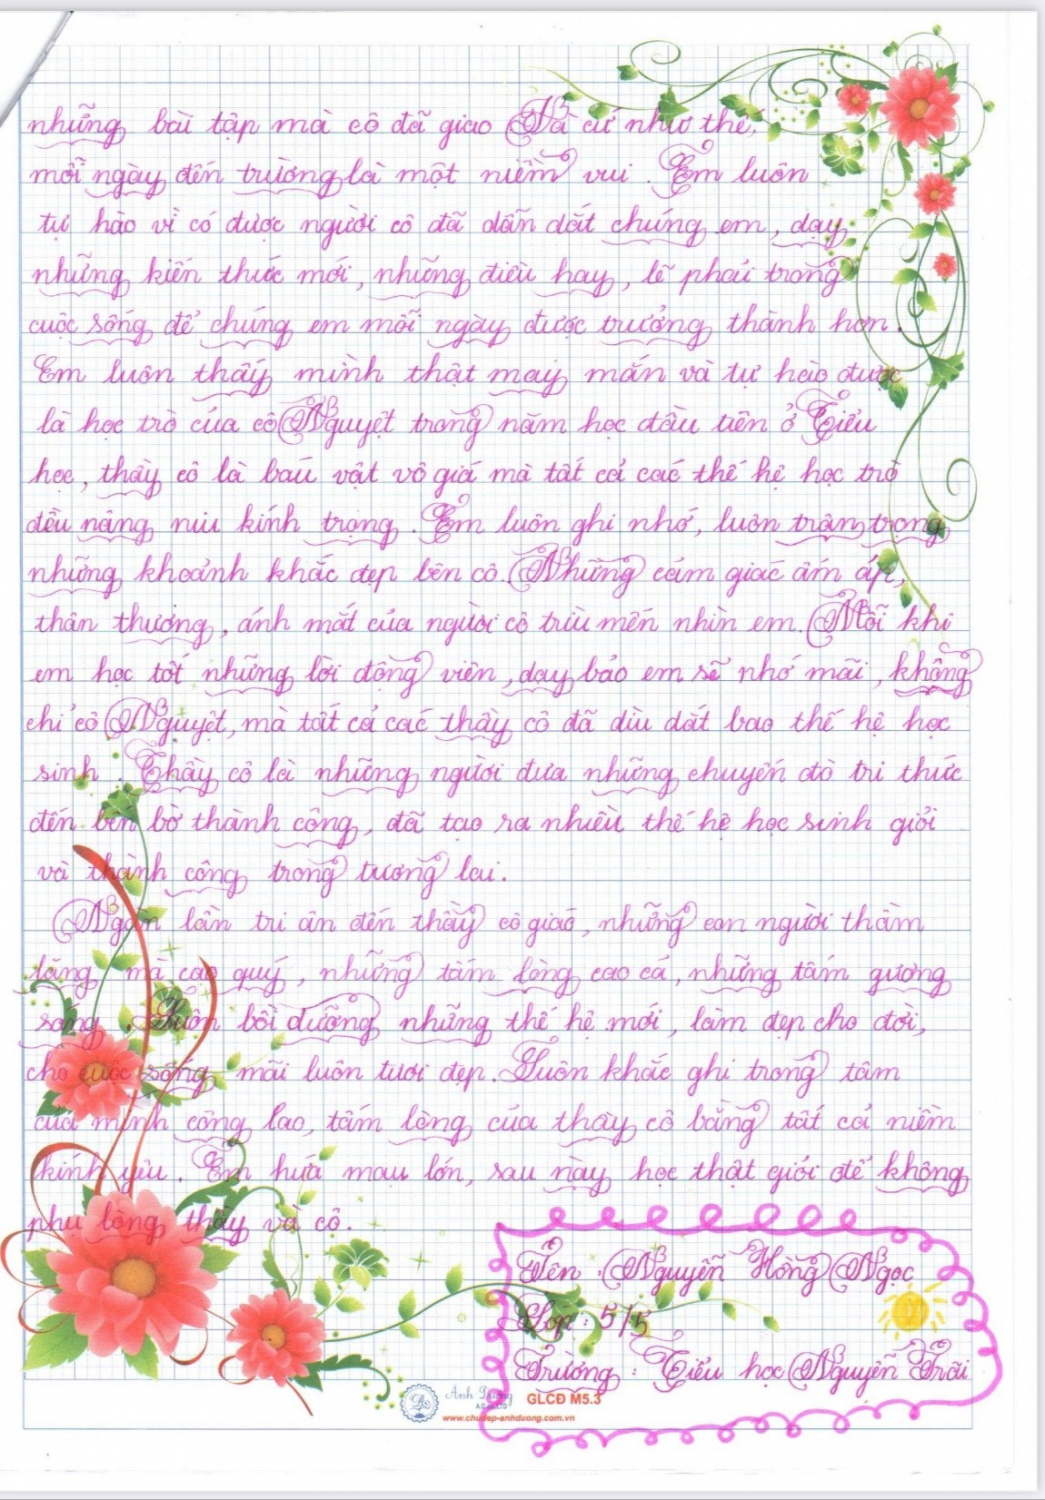 những bài tập mà cô đã giao. Và cứ như thế,
mỗi ngày đến trường là một niềm vui. Em luôn
tự hào vì có được người cô đã dẫn dắt chúng em, dạy
những kiến thức mới, những điều hay, lẽ phải trong
cuộc sống để chúng em mỗi ngày được trưởng thành hơn.
Em luôn thấy mình thật may mắn và tự hào được
là học trò của cô Nguyệt trong năm học đầu tiên ở Tiểu
học, thầy cô là báu vật vô giá mà tất cả các thế hệ học trò
đều nâng niu kính trọng. Em luôn ghi nhớ, luôn trân trọng
những khoảnh khắc đẹp bên cô. Những cảm giác ấm áp,
thân thương, ánh mắt của người cô trìu mến nhìn em. Mỗi khi
em học tốt những lời động viên, dạy bảo em sẽ nhớ mãi, không
chỉ cô Nguyệt, mà tất cả các thầy cô đã dìu dắt bao thế hệ học
sinh. Thầy cô là những người đưa những chuyến đò tri thức
đến bến bờ thành công, đã tạo ra nhiều thế hệ học sinh giỏi
và thành công trong tương lai.
Ngàn lần tri ân đến thầy cô giáo, những con người thầm
lặng mà cao quý, những tấm lòng cao cả, những tấm gương
sáng. Luôn bồi dưỡng những thế hệ mới, làm đẹp cho đời,
cho cuộc sống mãi luôn tươi đẹp. Luôn khắc ghi trong tâm
của mình công lao, tấm lòng của thầy cô bằng tất cả niềm
kính yêu. Em hứa mau lớn, sau này học thật giỏi để không
phụ lòng thầy và cô.
Tên: Nguyễn Hồng Ngọc
Lớp: 5/5
Trường: Tiểu học Nguyễn Trãi
Ánh Dương
GLCĐ M5.3
www.chudep-anhduong.com.vn